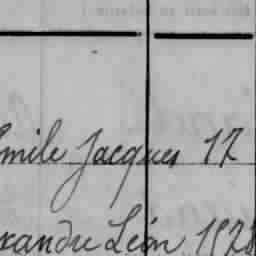 mile Jacques 17
xandre Léon 1928